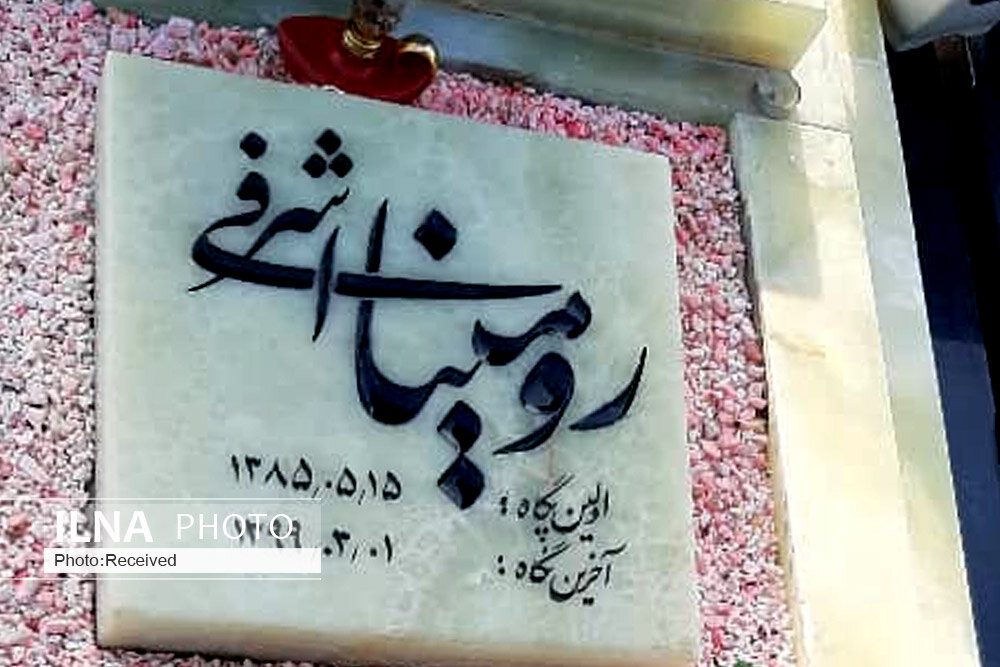 رومینا اشرفی
اولین پگاه : ۱۳۸۵٫۰۵٫۱۵
آخرین نگاه : ۱۳۹۹٫۰۳٫۰۱
ILNA PHOTO
Photo:Received